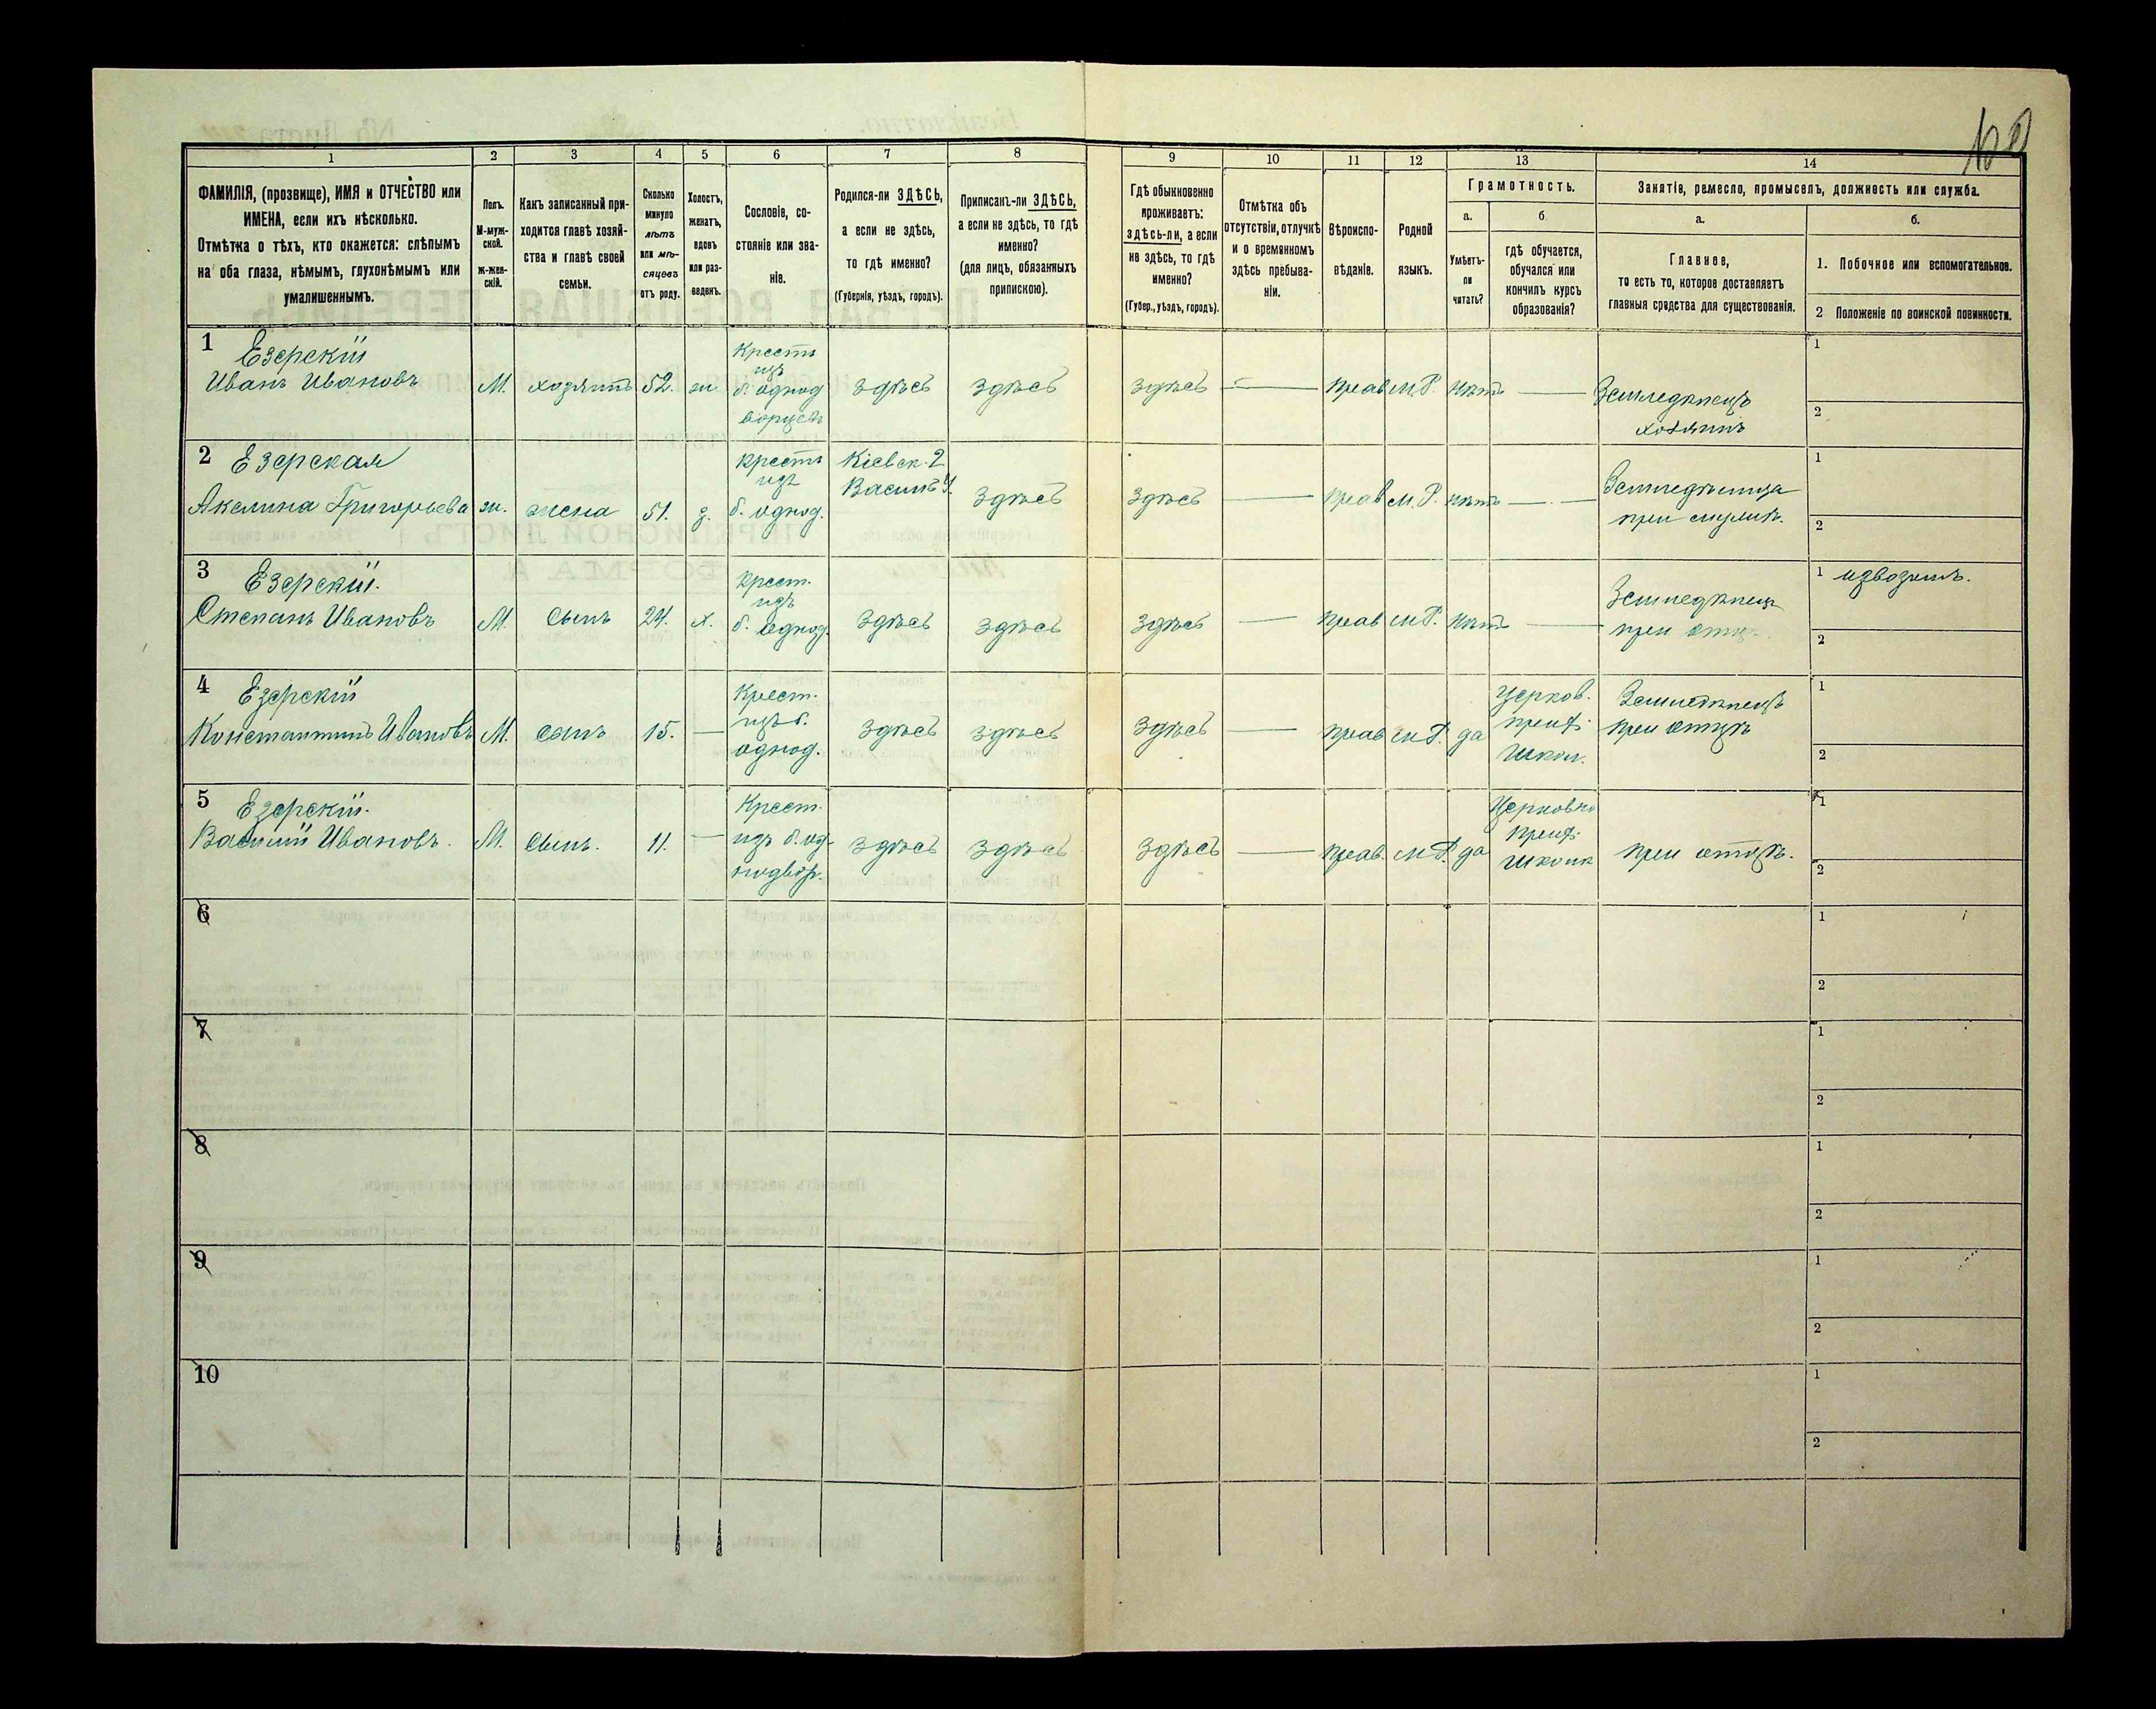 1 2 3 4 5 6 7 8 9 10 11 12 13 14
ФАМИЛІЯ, (прозвище), ИМЯ и ОТЧЕСТВО или
ИМЕНА, если ихъ нѣсколько.
Отмѣтка о тѣхъ, кто окажется: слѣпымъ
на оба глаза, нѣмымъ, глухонѣмымъ или
умалишеннымъ.
Полъ.
М-муж-
ской.
Ж-жен-
скій.
Какъ записанный при-
ходится главѣ хозяй-
ства и главѣ своей
семьи.
Сколько
минуло
лѣтъ
или мѣ-
сяцевъ
отъ роду.
Холостъ,
женатъ,
вдовъ
или раз-
веденъ.
Сословіе, со-
стояніе или зва-
ніе.
Родился-ли ЗДѢСЬ,
а если не здѣсь,
то гдѣ именно?
(Губернія, уѣздъ, городъ).
Приписанъ-ли ЗДѢСЬ,
а если не здѣсь, то гдѣ
именно?
(для лицъ, обязанныхъ
припискою).
Гдѣ обыкновенно
проживаетъ:
здѣсь-ли, а если
не здѣсь, то гдѣ
именно?
(Губер., уѣздъ, городъ).
Отмѣтка объ
отсутствіи, отлучкѣ
и о временномъ
здѣсь пребыва-
ніи.
Вѣроиспо-
вѣданіе.
Родной
языкъ.
Грамотность.
а.
Умѣетъ-
ли
читать?
б.
гдѣ обучается,
обучался или
кончилъ курсъ
образованія?
Занятіе, ремесло, промыселъ, должность или служба.
а.
Главное,
то есть то, которое доставляетъ
главныя средства для существованія.
б.
1. Побочное или вспомогательное.
2 Положеніе по воинской повинности.
1 Езерскій
Иванъ Ивановъ
М. хозяинъ 52. ж
Крестъ
изъ
б. однод
ворцевъ
здѣсь здѣсь здѣсь — прав м.Р. нѣтъ —
Земледѣлецъ
хозяинъ
1
2
2 Езерская
Акелина Григорьева
ж. жена 51. з.
крестъ
изъ
б. однод.
Кіевск. г
Васил. у.
здѣсь здѣсь — прав м.Р. нѣтъ —
Земледѣлица
при мужѣ.
1
2
3 Езерскій.
Степанъ Ивановъ
М. сынъ 24. х.
крест.
изъ
б. однод.
здѣсь здѣсь здѣсь — прав м.Р. нѣтъ —
Земледѣлецъ
при отцѣ
1 извозомъ.
2
4 Езерскій
Константинъ Ивановъ
М. сынъ 15. —
Крест.
изъ б.
однод.
здѣсь здѣсь здѣсь — прав м.Р. да
церков.
прих.
школ.
Земледѣлецъ
при отцѣ
1
2
5 Езерскій.
Василій Ивановъ.
М. сынъ. 11. —
Крест.
изъ б. од-
нодвор.
здѣсь здѣсь здѣсь — прав. м.Р. да
Церковно
прих.
школа
при отцѣ.
1
2
6
1
2
7
1
2
8
1
2
9
1
2
10
1
2